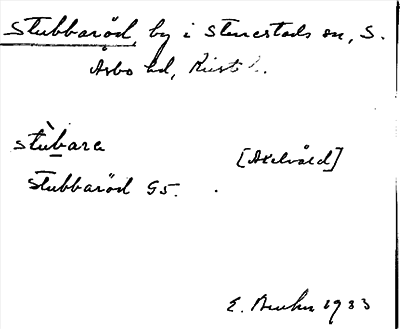 Stubbaröd, by i Starestads sn, S.
Åsbo hd, Krist l.
stùbara
[Axelvold]
Stubbaröd G5.
E. Bruhn 1933